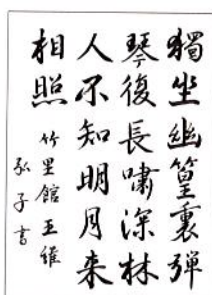 獨坐幽篁裏彈
琴復長嘯深林
人不知明月来
相照
竹里館王維
弘子書